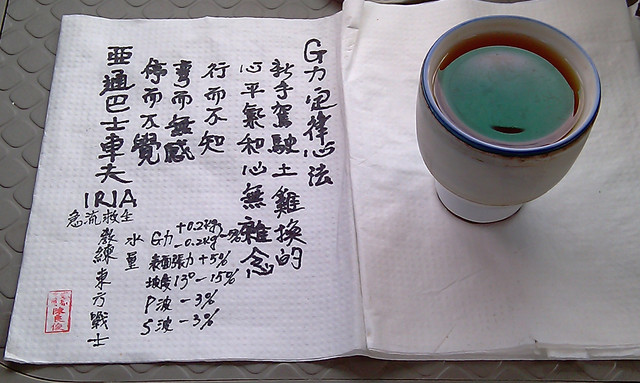 G力定律心法
新手駕駛土雞換的
心平氣和心無雜念
行而不知
彎而無感
停而不覺
亞通巴士車夫
IRIA
急流救生
教練東方戰士
水量
G力+0.2kg
-0.2kg
表面張力+5%
坡度13°-15%
P波-3%
S波-3%